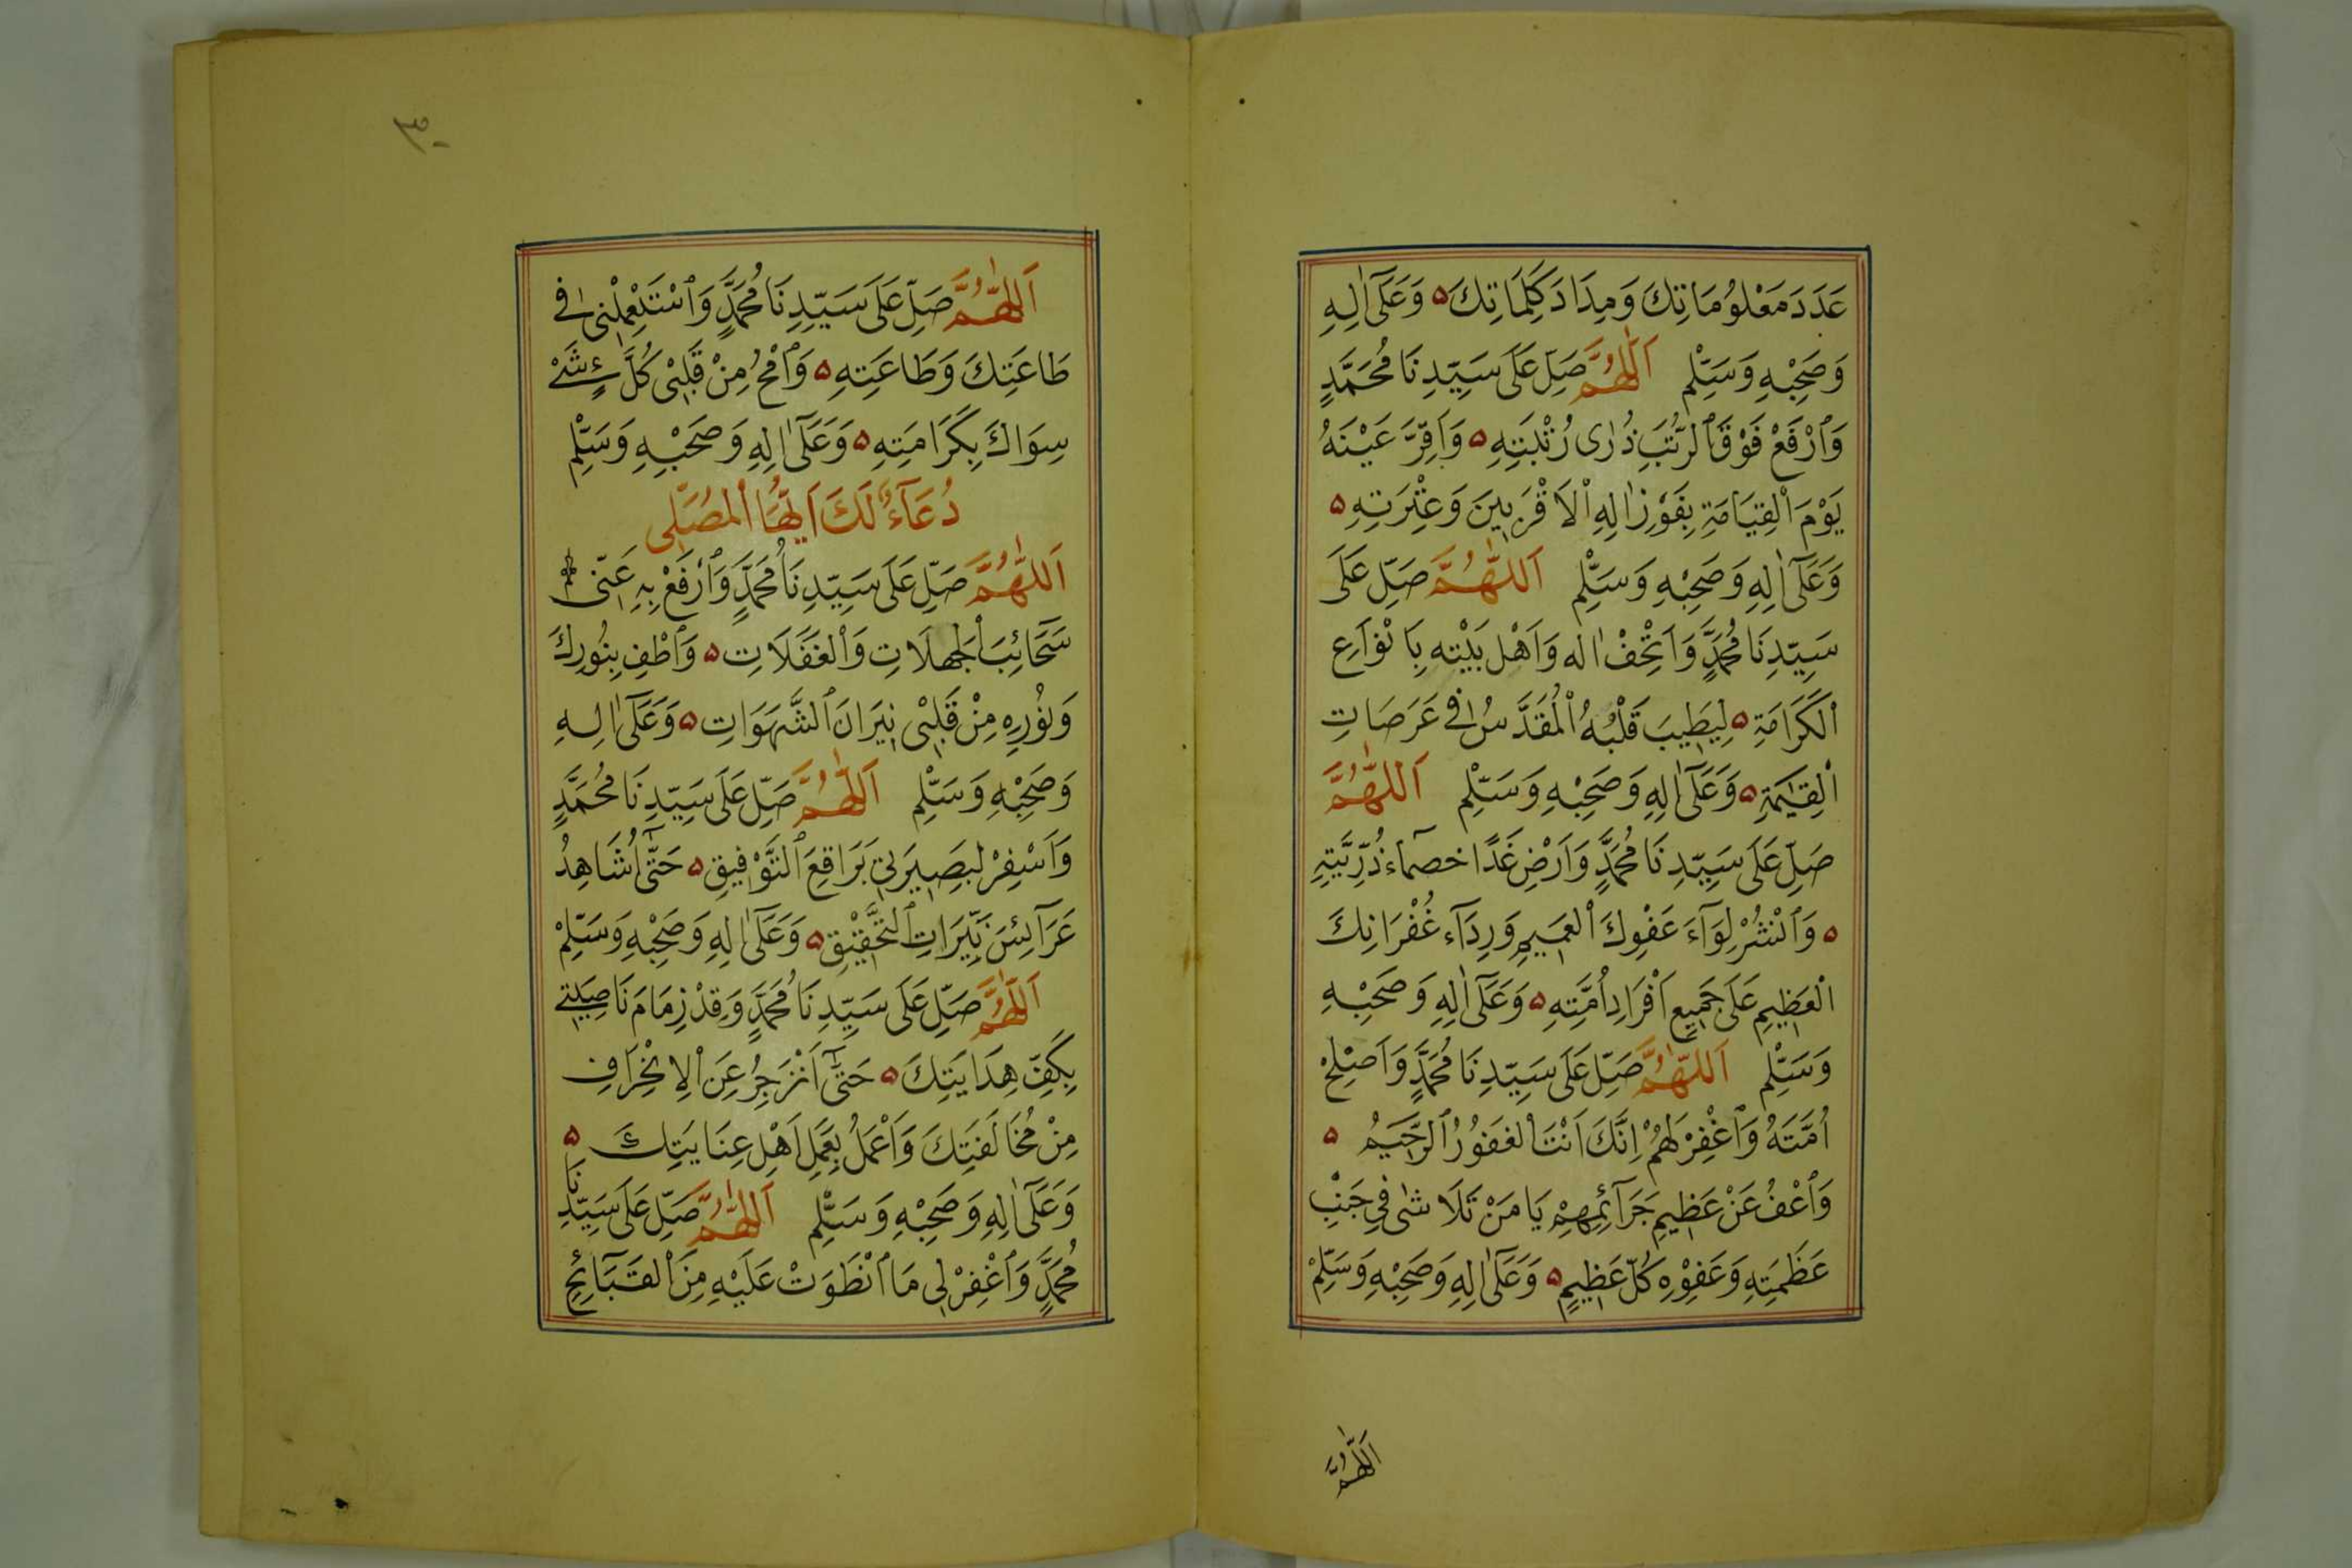 عَدَدَ مَعْلُومَاتِكَ وَمِدَادَ كَلِمَاتِكَ ۵ وَعَلَىٰٓ اٰلِهِ
وَصَحْبِهِ وَسَلِّمْ اَللّٰهُمَّ صَلِّ عَلَى سَيِّدِنَا مُحَمَّدٍ
وَٱرْفَعْ فَوْقَ ٱلرُّتَبِ ذُرٰى رُتْبَتِهِ ۵ وَاَقِرَّ عَيْنَهُ
يَوْمَ اْلقِيَامَةِ بِفَوْزِ اٰلِهِ اْلاَقْرَبِينَ وَعِتْرَتِهِ ۵
وَعَلَىٰٓ اٰلِهِ وَصَحْبِهِ وَسَلِّمْ اَللّٰهُمَّ صَلِّ عَلَى
سَيِّدِنَا مُحَمَّدٍ وَاَتْحِفْ اٰله وَاَهْل بَيْتِه بِاَنْوَاعِ
اْلكَرَامَةِ ۵ لِيَطِيبَ قَلْبُهُ اْلمُقَدَّسُ فِى عَرَصَاتِ
اْلقِيٰمَةِ ۵ وَعَلَىٰٓ اٰلِهِ وَصَحْبِهِ وَسَلِّمْ اَللّٰهُمَّ
صَلِّ عَلَى سَيِّدِنَا مُحَمَّدٍ وَاَرْضِ غَدًا خصمآء ذُرِّيَّتِهِ
۵ وَٱنْشُرْ لِوَآءَ عَفْوِكَ اْلعَمِيمِ وَرِدَآء غُفْرَانِكَ
اْلعَظِيمِ عَلَى جَمِيعِ اَفْرَادِ اُمَّتِهِ ۵ وَعَلَىٰٓ اٰلِهِ وَصَحْبِهِ
وَسَلِّمْ اَللّٰهُمَّ صَلِّ عَلَى سَيِّدِنَا مُحَمَّدٍ وَاَصْلِحْ
اُمَّتَهُ وَٱغْفِرْ لَهُمْ اِنَّكَ اَنْتَ اْلغَفُورُ ٱلرَّحِيمُ ۵
وَٱعْفُ عَنْ عَظِيمِ جَرَآئِمِهِمْ يَا مَنْ تَلَاشٰى فِى جَنْبِ
عَظَمَتِهِ وَعَفْوِهِ كُلّ عَظِيمٍ ۵ وَعَلَىٰٓ اٰلِهِ وَصَحْبِهِ وَسَلِّمْ
اَللّٰهُمَّ
٣٠
اَللّٰهُمَّ صَلِّ عَلَى سَيِّدِنَا مُحَمَّدٍ وَٱسْتَعْمِلْنِى فِى
طَاعَتِكَ وَطَاعَتِهِ ۵ وَٱمْحُ مِنْ قَلْبِى كُلَّ شَىْءٍ
سِوَاكَ بِكَرَامَتِهِ ۵ وَعَلَىٰٓ اٰلِهِ وَصَحْبِهِ وَسَلِّمْ
دُعَآءٌ لَكَ اَيُّهَا اْلمُصَلِّى
اَللّٰهُمَّ صَلِّ عَلَى سَيِّدِنَا مُحَمَّدٍ وَٱرْفَعْ بِهِ عَنِّى
سَحَائِبَ اْلجهلَاتِ وَاْلغَفَلَاتِ ۵ وَٱطْفِ بِنُورِكَ
وَنُورِهِ مِنْ قَلْبِى نِيَرَانَ ٱلشَّهَوَاتِ ۵ وَعَلَىٰٓ اٰلِهِ
وَصَحْبِهِ وَسَلِّمْ اَللّٰهُمَّ صَلِّ عَلَى سَيِّدِنَا مُحَمَّدٍ
وَاَسْفِرْ لبَصِيرَتِى بَرَاقِعَ ٱلتَّوْفِيقِ ۵ حَتّٰىٓ اُشَاهِدُ
عَرَآئِسَ نَيِّرَاتِ ٱلتَّحْقِيْقِ ۵ وَعَلَىٰٓ اٰلِهِ وَصَحْبِهِ وَسَلِّمْ
اَللّٰهُمَّ صَلِّ عَلَى سَيِّدِنَا مُحَمَّدٍ وَقِدْ زِمَامَ نَاصِيَتِى
بِكَفِّ هِدَايَتِكَ ۵ حَتّٰىٓ اَنْزَجِرُ عَنِ اْلاِنْحِرَافِ
مِنْ مُخَالَفَتِكَ وَاَعْمَلُ بِعَمَلِ اَهْلِ عِنَايَتِكَ ۵
وَعَلَىٰٓ اٰلِهِ وَصَحْبِهِ وَسَلِّمْ اَللّٰهُمَّ صَلِّ عَلَى سَيِّدِنَا
مُحَمَّدٍ وَٱغْفِرْ لِى مَا ٱنْطَوَتْ عَلَيْهِ مِنَ اْلقَبَآئِحِ